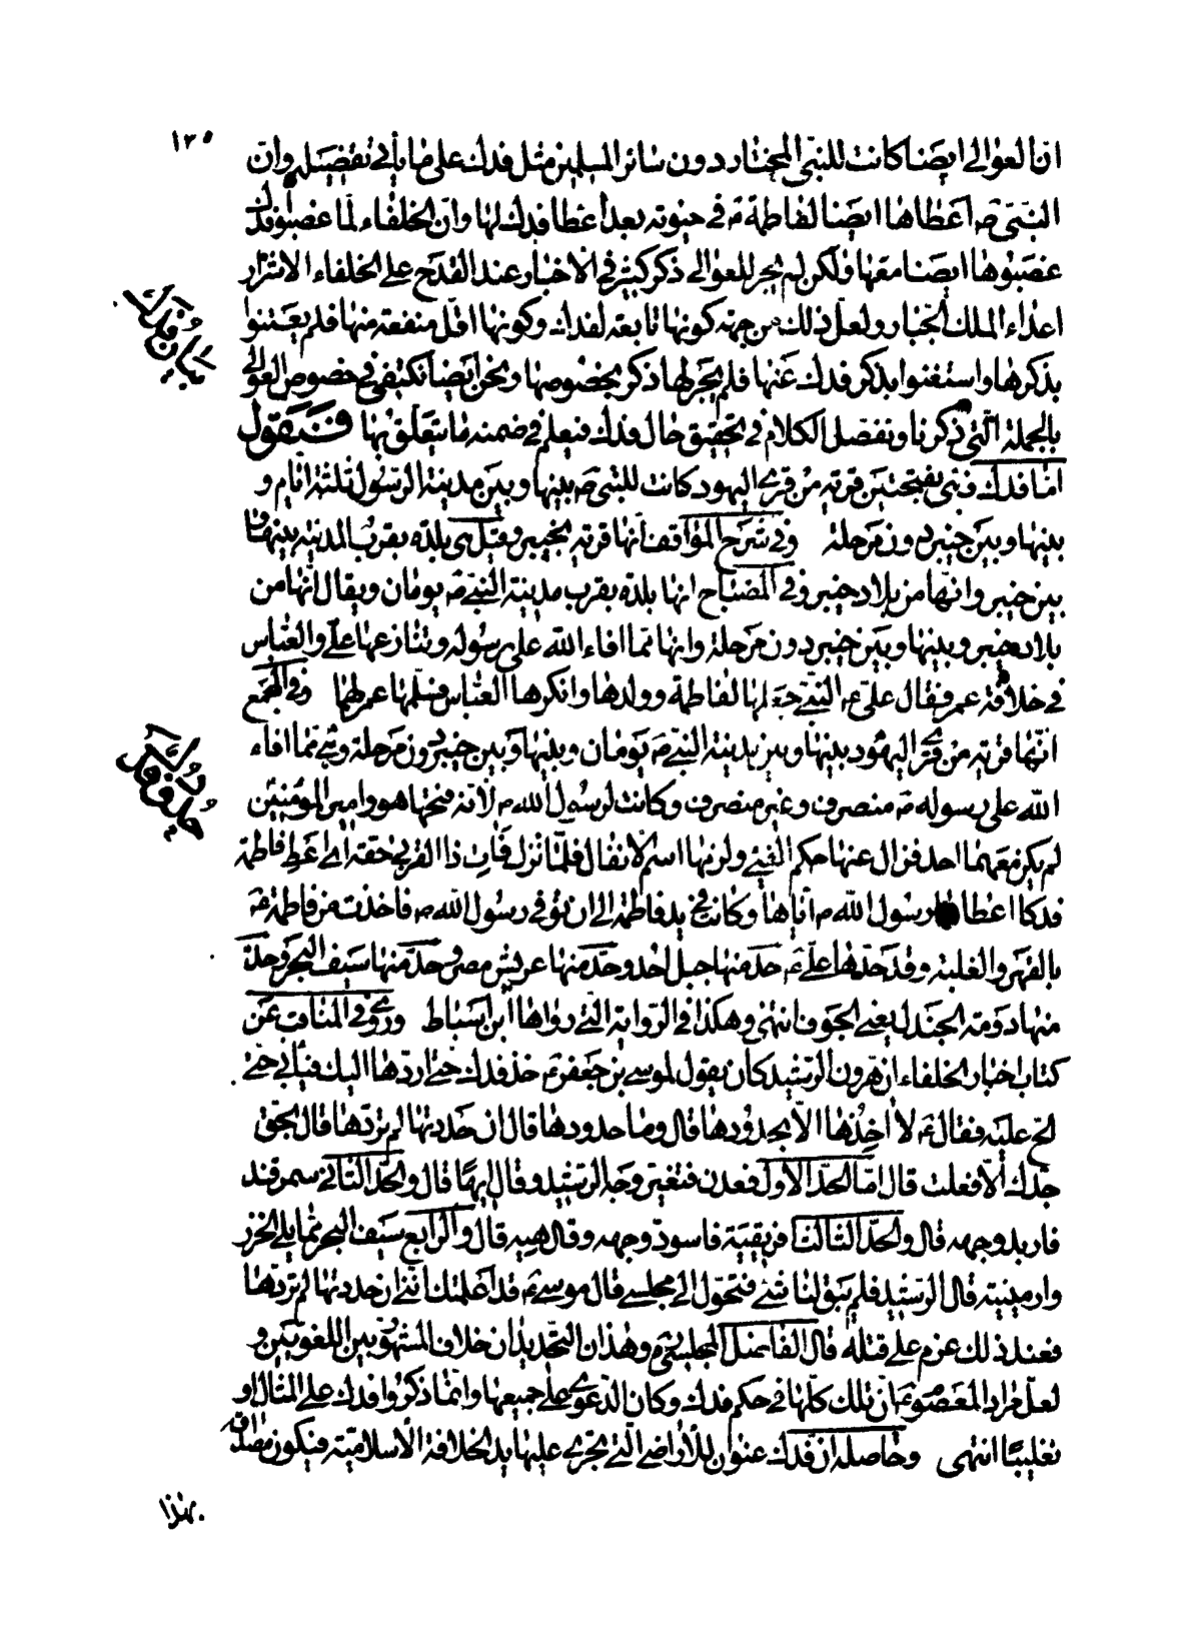 ١٣٥
انّ العوالي ايضا كانت للنبيّ المختار دون سائر المسلمين مثل فدك على ما يأتي تفضيله وانّ
النبيّ ص اعطاها ايضا لفاطمة ع في حيوته بعد اعطا فدك لها وانّ الخلفاء لمّا غصبوا فدك
غصبوها ايضا معها ولكن لم يجر للعوالي ذكر كثير في الاخبار عند القدح على الخلفاء الاشرار
اعداء الملك الجبّار ولعلّ ذلك من جهة كونها تابعة لفدك وكونها اقلّ منفعة منها فلم يعتنوا
بذكرها واستغنوا بذكر فدك عنها فلم يجر لها ذكر بخصوصها ونحن ايضا نكتفى في خصوص العوالي
بالجملة الّتي ذكرنا ونفصل الكلام في تحقيق حال فدك فيعلم في ضمنه ما يتعلق بها فنقول
امّا فدك فهى بفتحتين قرية من قرى اليهود كانت للنبي ص بينها وبين مدينة الرسول ثلثة ايّام و
بينها وبين خيبر دون مرحلة وفي شرح المواقف انّها قرية بخيبر وقيل هي بلدة بقرب المدينة بينها و
بين خيبر وانّها من بلاد خيبر وفي المصباح انها بلدة بقرب مدينة النبي ص يومان ويقال انّها من
بلاد خيبر وبينها وبين خيبر دون مرحلة وانها ممّا افاء الله على رسوله وتنازعها عليّ والعباس
في خلافة عمر فقال عليّ ع النبي جعلها لفاطمة وولدها وانكرها العباس فسلّمها عمر لهما وفي المجمع
انّها قرية من قرى اليهود بينها وبين مدينة النبي ص يومان وبينها وبين خيبر دون مرحلة وهي ممّا افاء
الله على رسوله ص منصرف وغير منصرف وكانت لرسول الله ص لانّه فتحها هو وامير المؤمنين
لم يكن معهما احد فزال عنها حكم الفيء ولزمها اسم الانفال فلمّا نزل فآت ذا القربى حقه اى اعط فاطمة
فدكا اعطاها رسول الله ص ايّاها وكانت في يد فاطمة الى ان توفي رسول الله ص فاخذت من فاطمة ع
بالقهر والغلبة وقد حدّها عليّ ع حد منها جبل احد وحدّ منها عريش مصر وحدّ منها سيف البحر وحدّ
منها دومة الجندل يعني الجوف انتهى وهكذا في الرواية الّتي رواها ابن اسباط وروى في المناقب عن
كتاب اخبار الخلفاء ان هرون الرشيد كان يقول لموسى بن جعفر ع خذ فدك حتّى اردّها اليك فيأبى حتّى
الحّ عليه فقال ع لا اخذها الاّ بحدودها قال وما حدودها قال ان حددتها لم تردّها قال بحقّ
جدك الاّ فعلت قال امّا الحدّ الاوّل فعدن فتغيّر وجه الرشيد وقال ايهًا قال والحدّ الثاني سمرقند
فاربد وجهه قال والحدّ الثالث افريقيّة فاسودّ وجهه وقال هيه قال والرابع سيف البحر ممّا يلي الخزر
وارمينيّة قال الرشيد فلم يبق لنا شئ فتحوّل الى مجلسي قال موسى ع قد اعلمتك انّني ان حددتها لم تردّها
فعند ذلك عزم على قتله قال الفاضل المجلسيّ ره وهذان التحديدان خلاف المشهور بين اللغويّين و
لعلّ مراد المعصوم ع ان تلك كلّها في حكم فدك وكان الدّعوى على جميعها وانّما ذكروا فدك على المثال او
تغليبًا انتهى وحاصله ان فدك عنوان للأراضي الّتي تجرى عليها يد الخلافة الاسلاميّة فيكون مصداق
بهذا
بيان فدك
حدود فدك